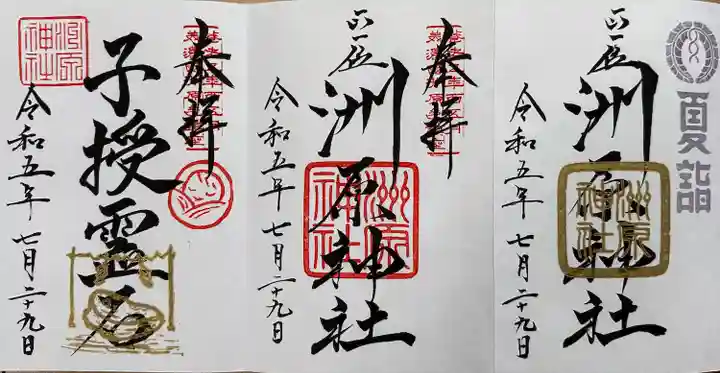 奉拝
正一位
洲原神社
洲原神社
令和五年 七月二十九日
夏詣
正一位
洲原神社
洲原神社
令和五年 七月二十九日
奉拝
子授霊石
洲原神社
令和五年 七月二十九日